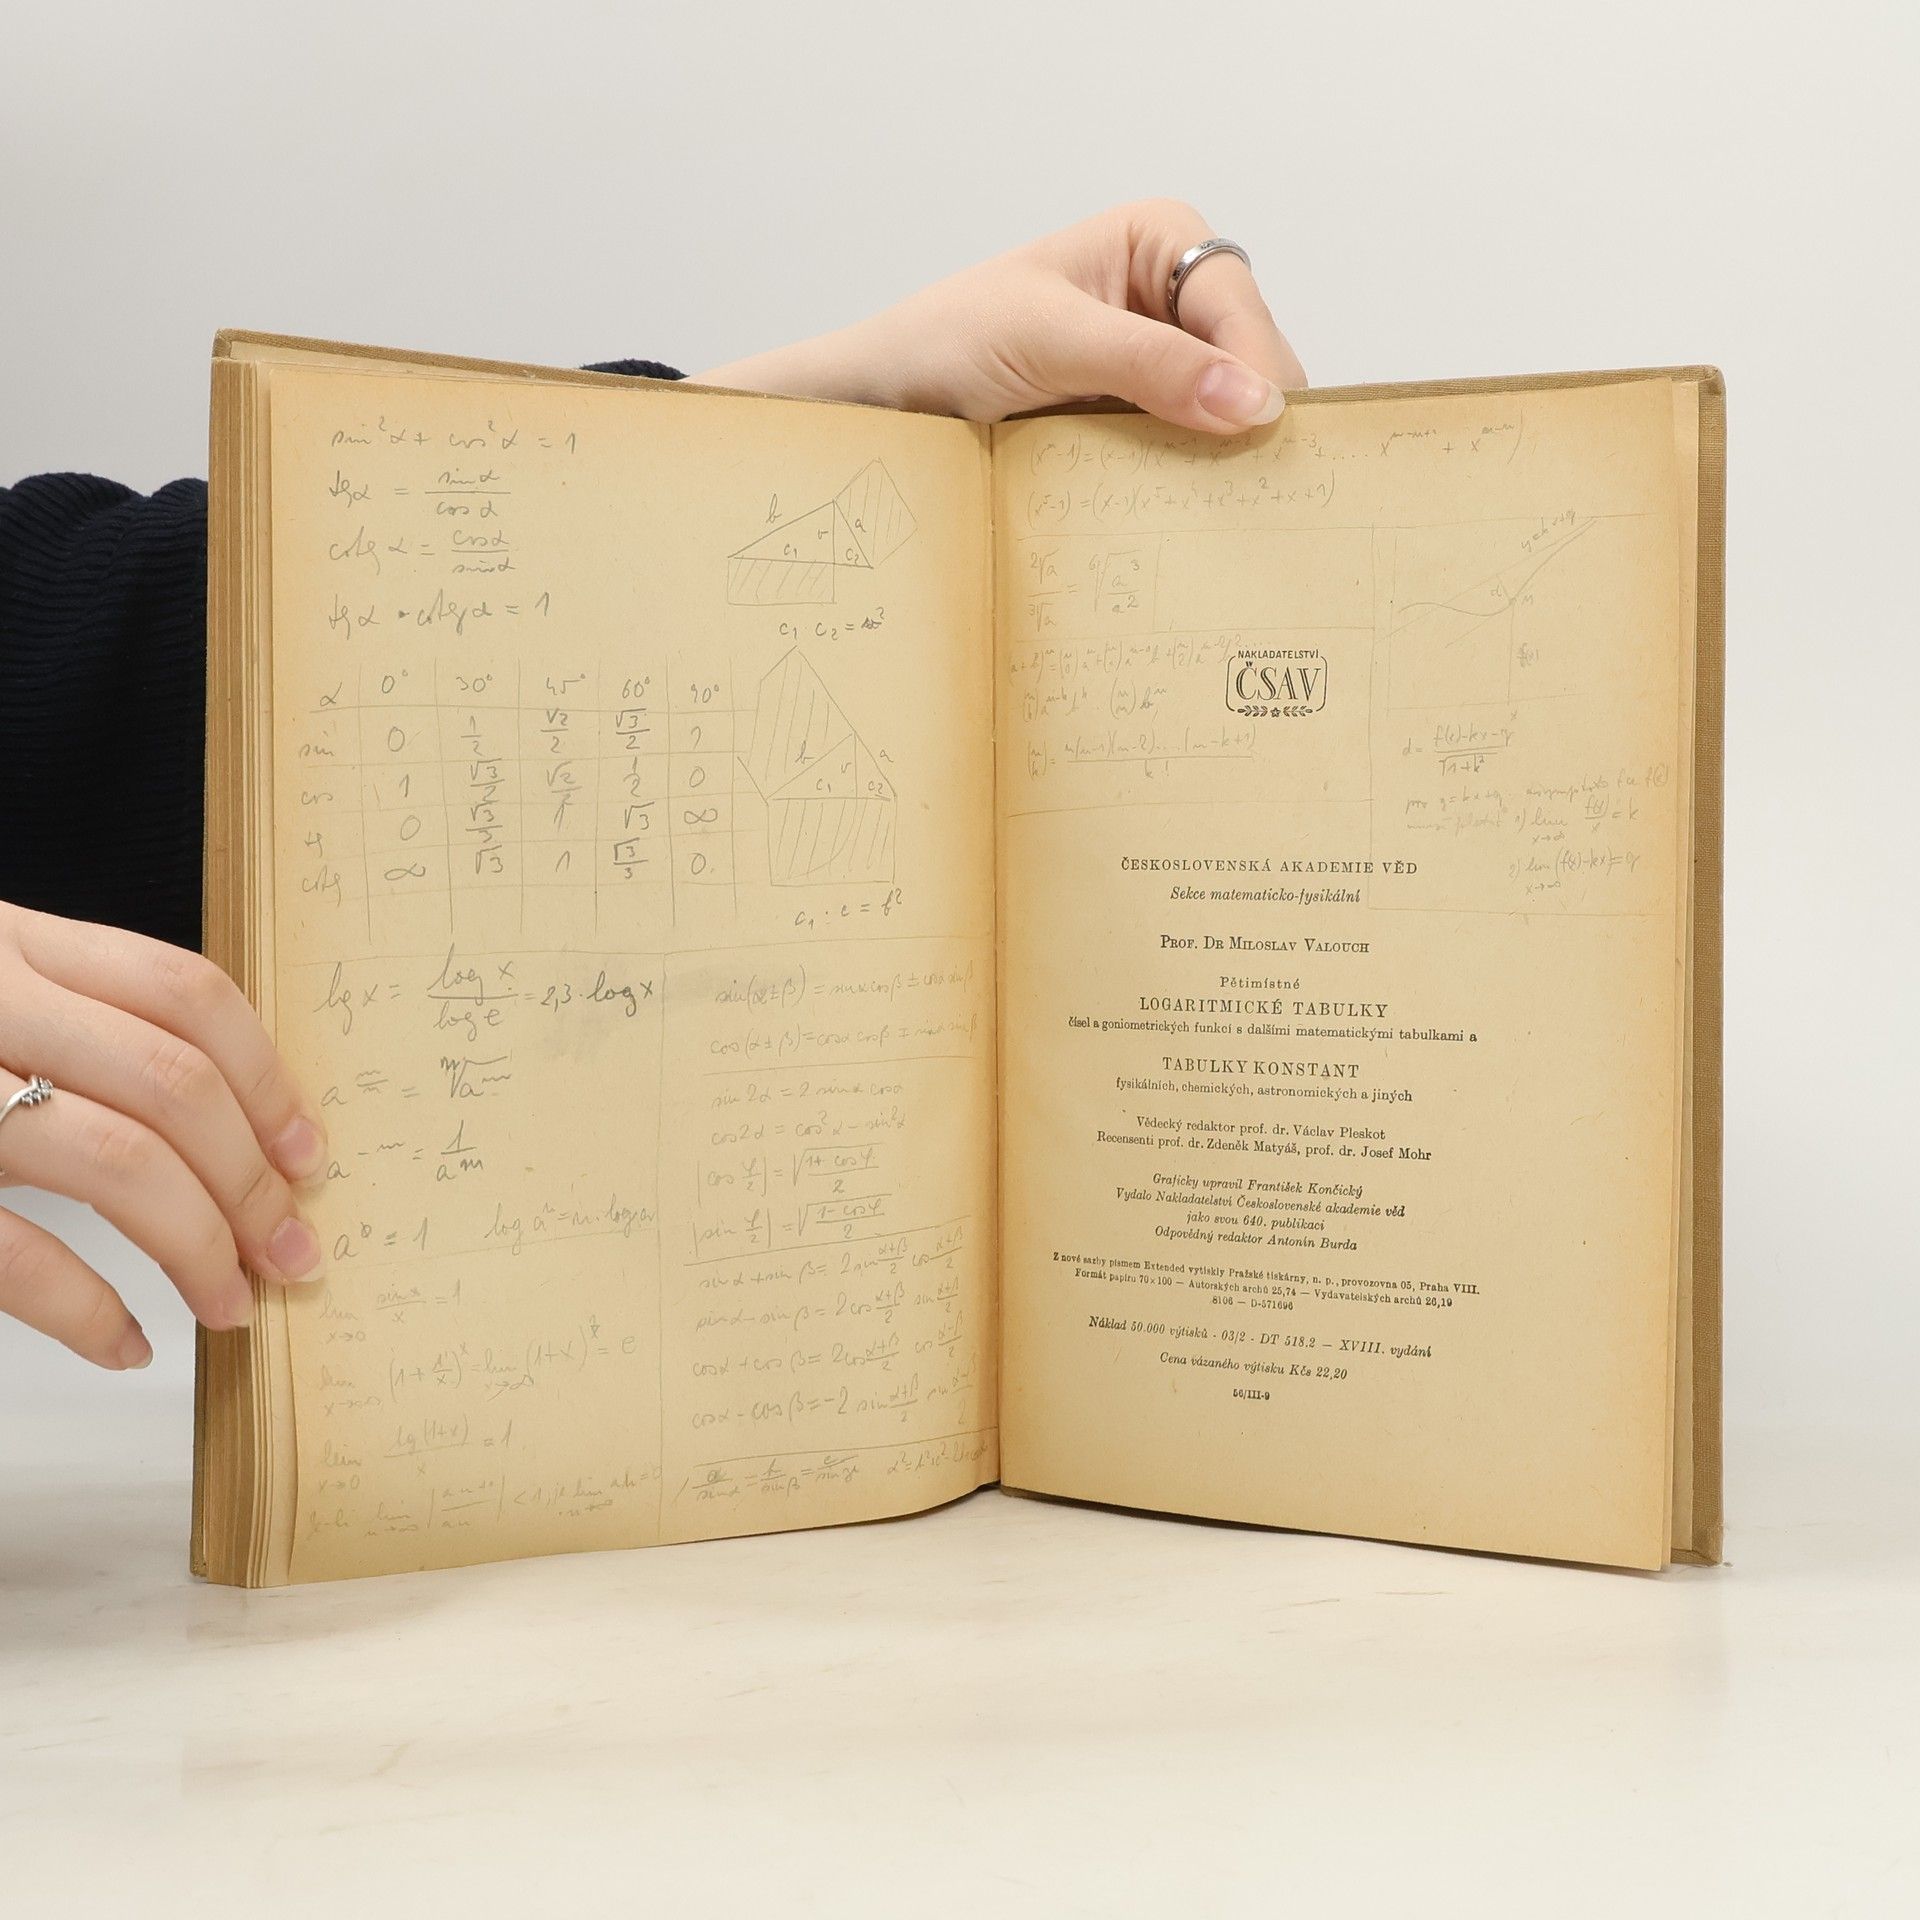 sin²α + cos²α = 1
tgα = sinα / cosα
cotg α = cosα / sinα
tgα · cotgα = 1
b a v c₁ c₂
c₁ c₂ = v²
α 0° 30° 45° 60° 90°
sin 0 1/2 √2/2 √3/2 1
cos 1 √3/2 √2/2 1/2 0
tg 0 √3/3 1 √3 ∞
cotg ∞ √3 1 √3/3 0
b v a c₁ c₂
c₁ · c = b²
lg x = log x / log e = 2,3 · log x
a^(m/n) = ⁿ√a^m
a^(-m) = 1 / a^m
a⁰ = 1 log aⁿ = n · log a
lim x→0 sin x / x = 1
lim (1 + 1/x)^x = lim (1+x) = e
lim x→0 lg(1+x) / x = 1
sin(α±β) = sinα cosβ ± cosα sinβ
cos(α±β) = cosα cosβ ∓ sinα sinβ
sin 2α = 2 sinα cosα
cos 2α = cos²α − sin²α
|cos φ/2| = √(1+cosφ / 2)
|sin φ/2| = √(1−cosφ / 2)
sinα + sin β = 2 sin α+β/2 cos α+β/2
sinα − sin β = 2 cos α+β/2 sin α+β/2
cosα + cos β = 2 cos α+β/2 cos α−β/2
cosα − cos β = −2 sin α+β/2 sin α−β/2
a/sinα = b/sinβ = c/sinγ
(x⁵−1) = (x−1)(x⁵+x⁴+x³+x²+x+1)
²√a / ³√a = ⁶√(a³/a²)
y = kx+q
d M
NAKLADATELSTVÍ
ČSAV
d = f(x)−kx−q / √1+k²
1) lim x→∞ f(x)/x = k
2) lim x→∞ (f(x)−kx) = q
ČESKOSLOVENSKÁ AKADEMIE VĚD
Sekce matematicko-fysikální
PROF. DR MILOSLAV VALOUCH
Pětimístné
LOGARITMICKÉ TABULKY
čísel a goniometrických funkcí s dalšími matematickými tabulkami a
TABULKY KONSTANT
fysikálních, chemických, astronomických a jiných
Vědecký redaktor prof. dr. Václav Pleskot
Recensenti prof. dr. Zdeněk Matyáš, prof. dr. Josef Mohr
Graficky upravil František Končický
Vydalo Nakladatelství Československé akademie věd
jako svou 640. publikaci
Odpovědný redaktor Antonín Burda
Z nové sazby písmem Extended vytiskly Pražské tiskárny, n. p., provozovna 05, Praha VIII.
Formát papíru 70×100 — Autorských archů 25,74 — Vydavatelských archů 26,19
8106 — D-571696
Náklad 50.000 výtisků - 03/2 - DT 518.2 — XVIII. vydání
Cena vázaného výtisku Kčs 22,20
56/III-9